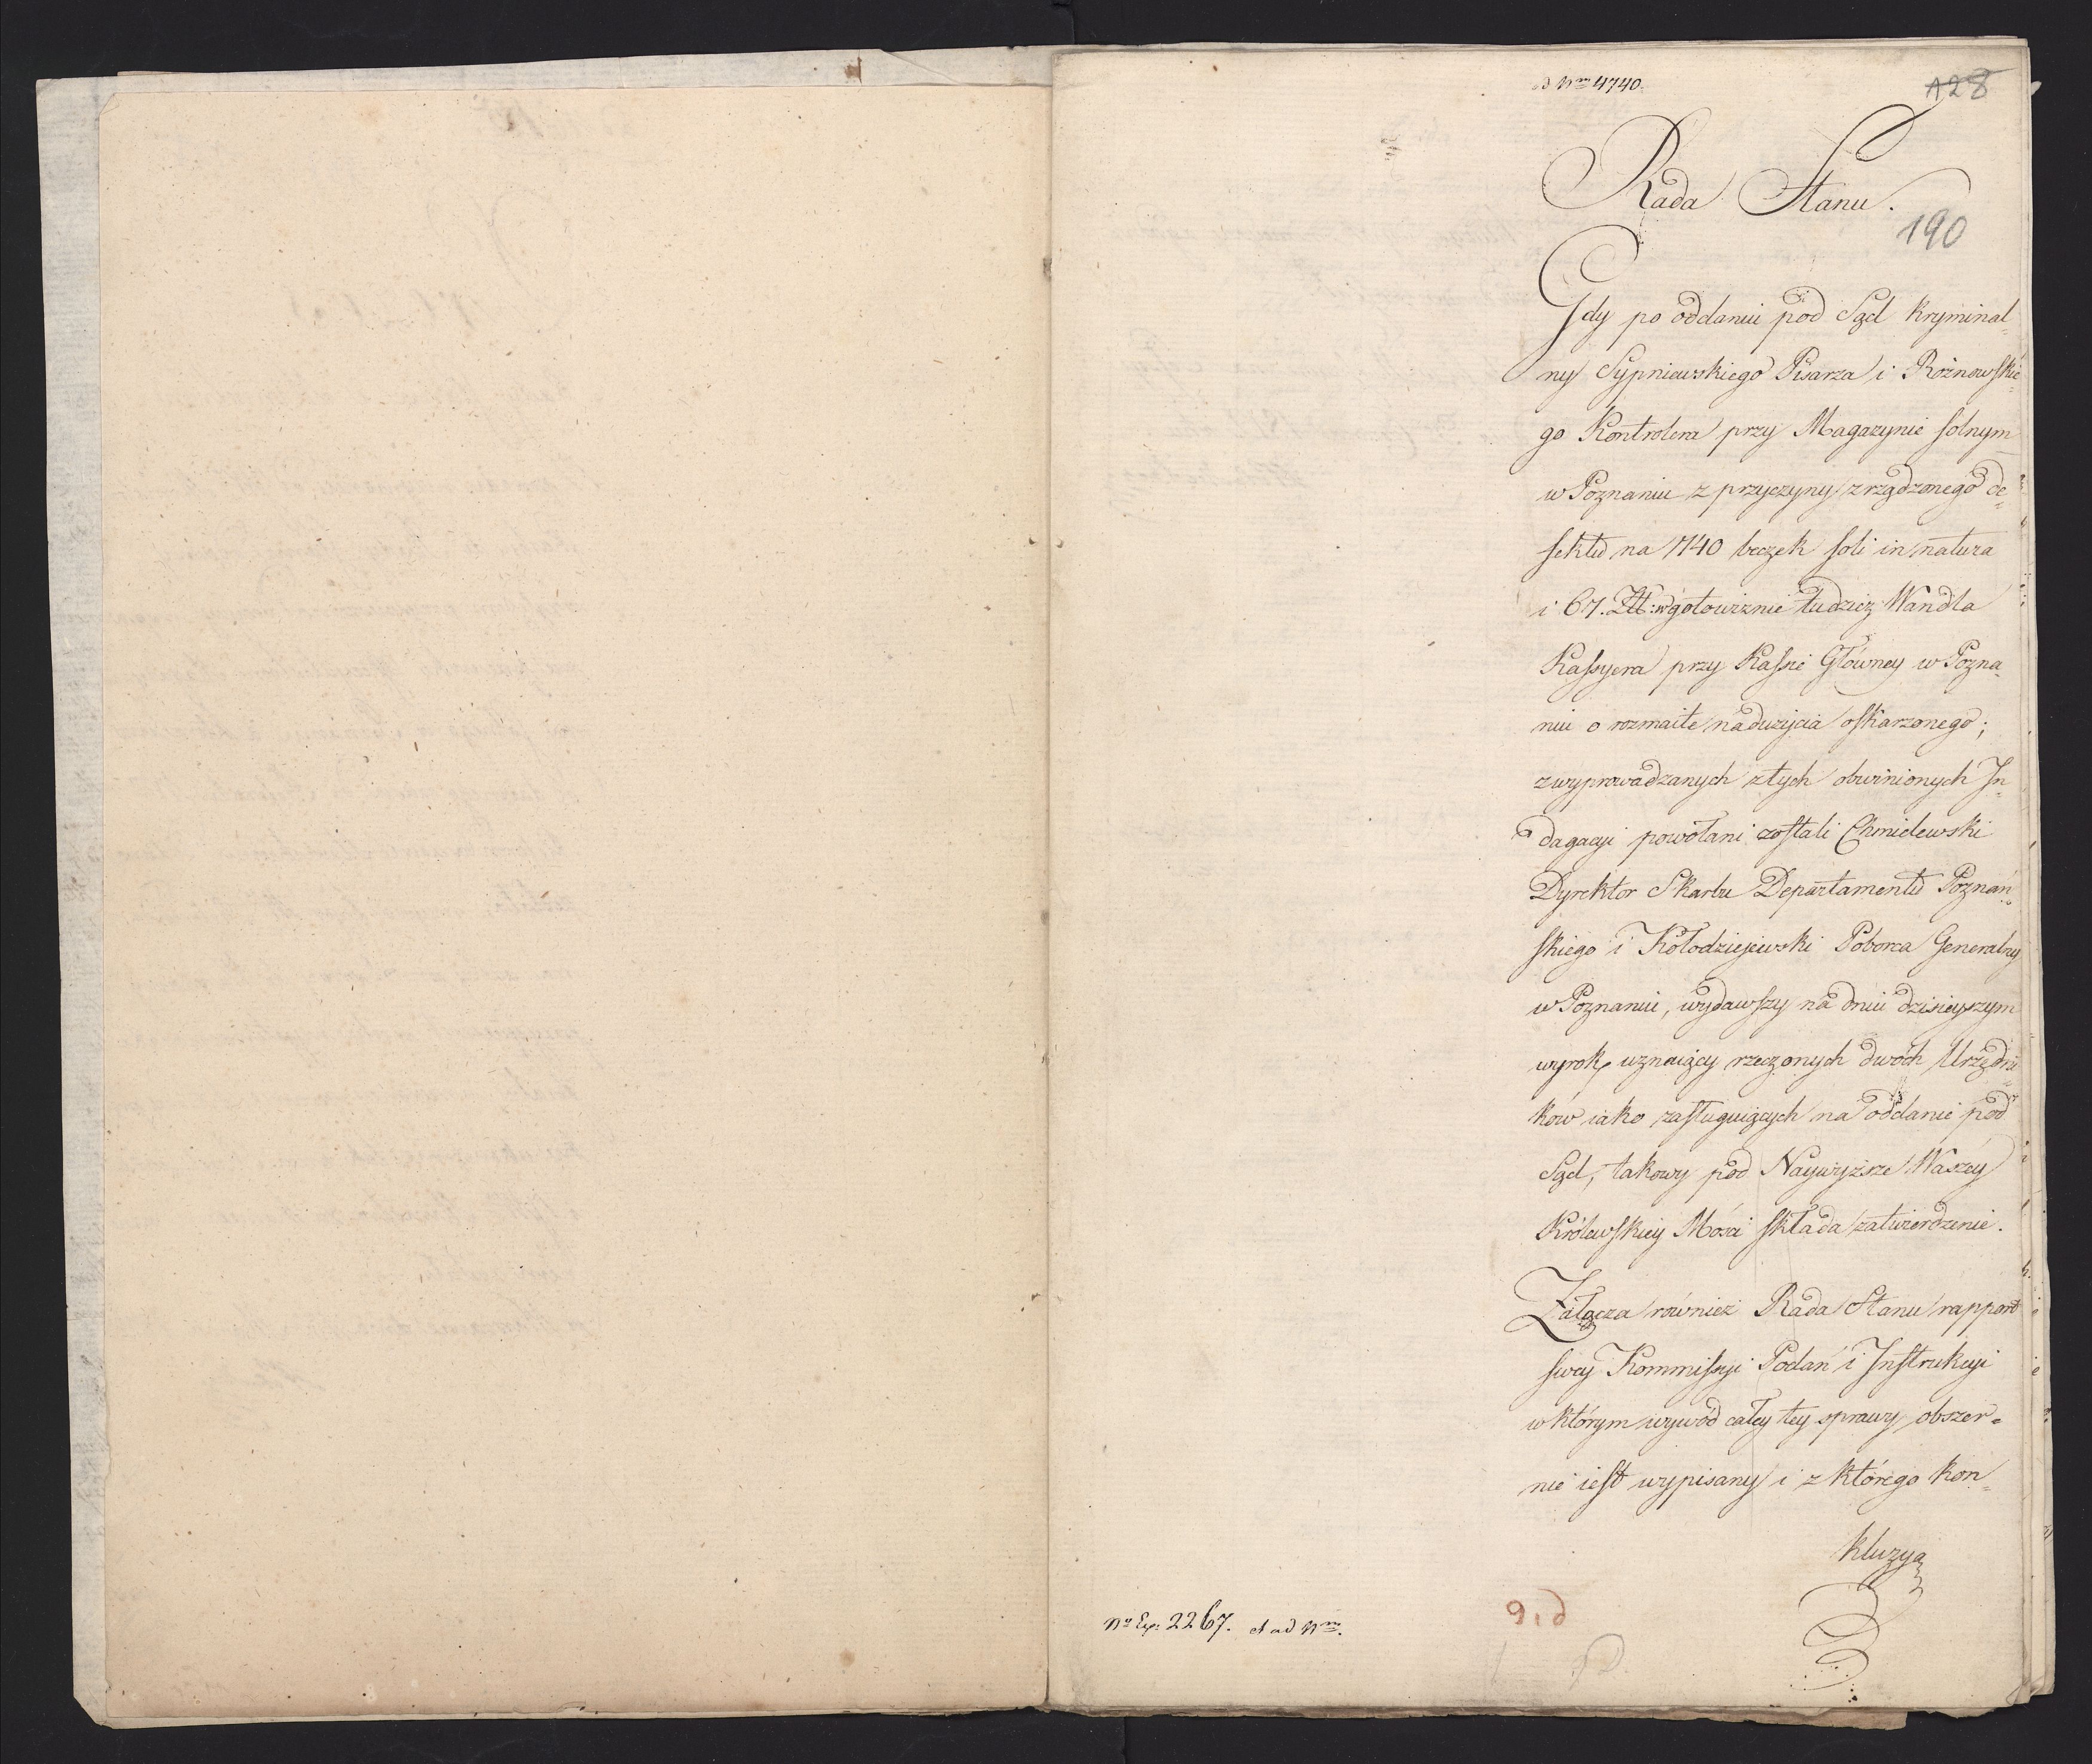 ad Nrm 4740.
128
Rada Stanu.
190
Gdy po oddaniu pod Sąd Kryminal=
ny Sypniewskiego Pisarza i Rożnowskie=
go Kontrolera przy Magazynie solnym
w Poznaniu z przyczyny zrządzonego de=
fektu na 1140 beczek soli in natura
i 67. Zł: w gotowiznie tudzież Wandla
Kassyera przy Kassie Główney w Pozna=
niu o rozmaite nadużycia oskarżonego;
z wyprowadzanych z tych obwinionych In=
dagacyi powołani zostali Chmielewski
Dyrektor Skarbu Departamentu Poznań=
skiego i Kołodziejewski Poborca Generalny
w Poznaniu, wydawszy na dniu dzisieyszym
wyrok, uznaiący rzeczonych dwóch Urzędni=
ków iako zasługuiących na oddanie pod
Sąd, takowy pod Naywyższe Waszey
Królewskiey Mości składa zatwierdzenie.
Załącza również Rada Stanu rapport
swey Kommissyi Podań i Instrukcyi
w którym wywód całey tey sprawy obszer=
nie iest wypisany i z którego kon=
kluzya
No Ex: 2267. et ad Nrm.